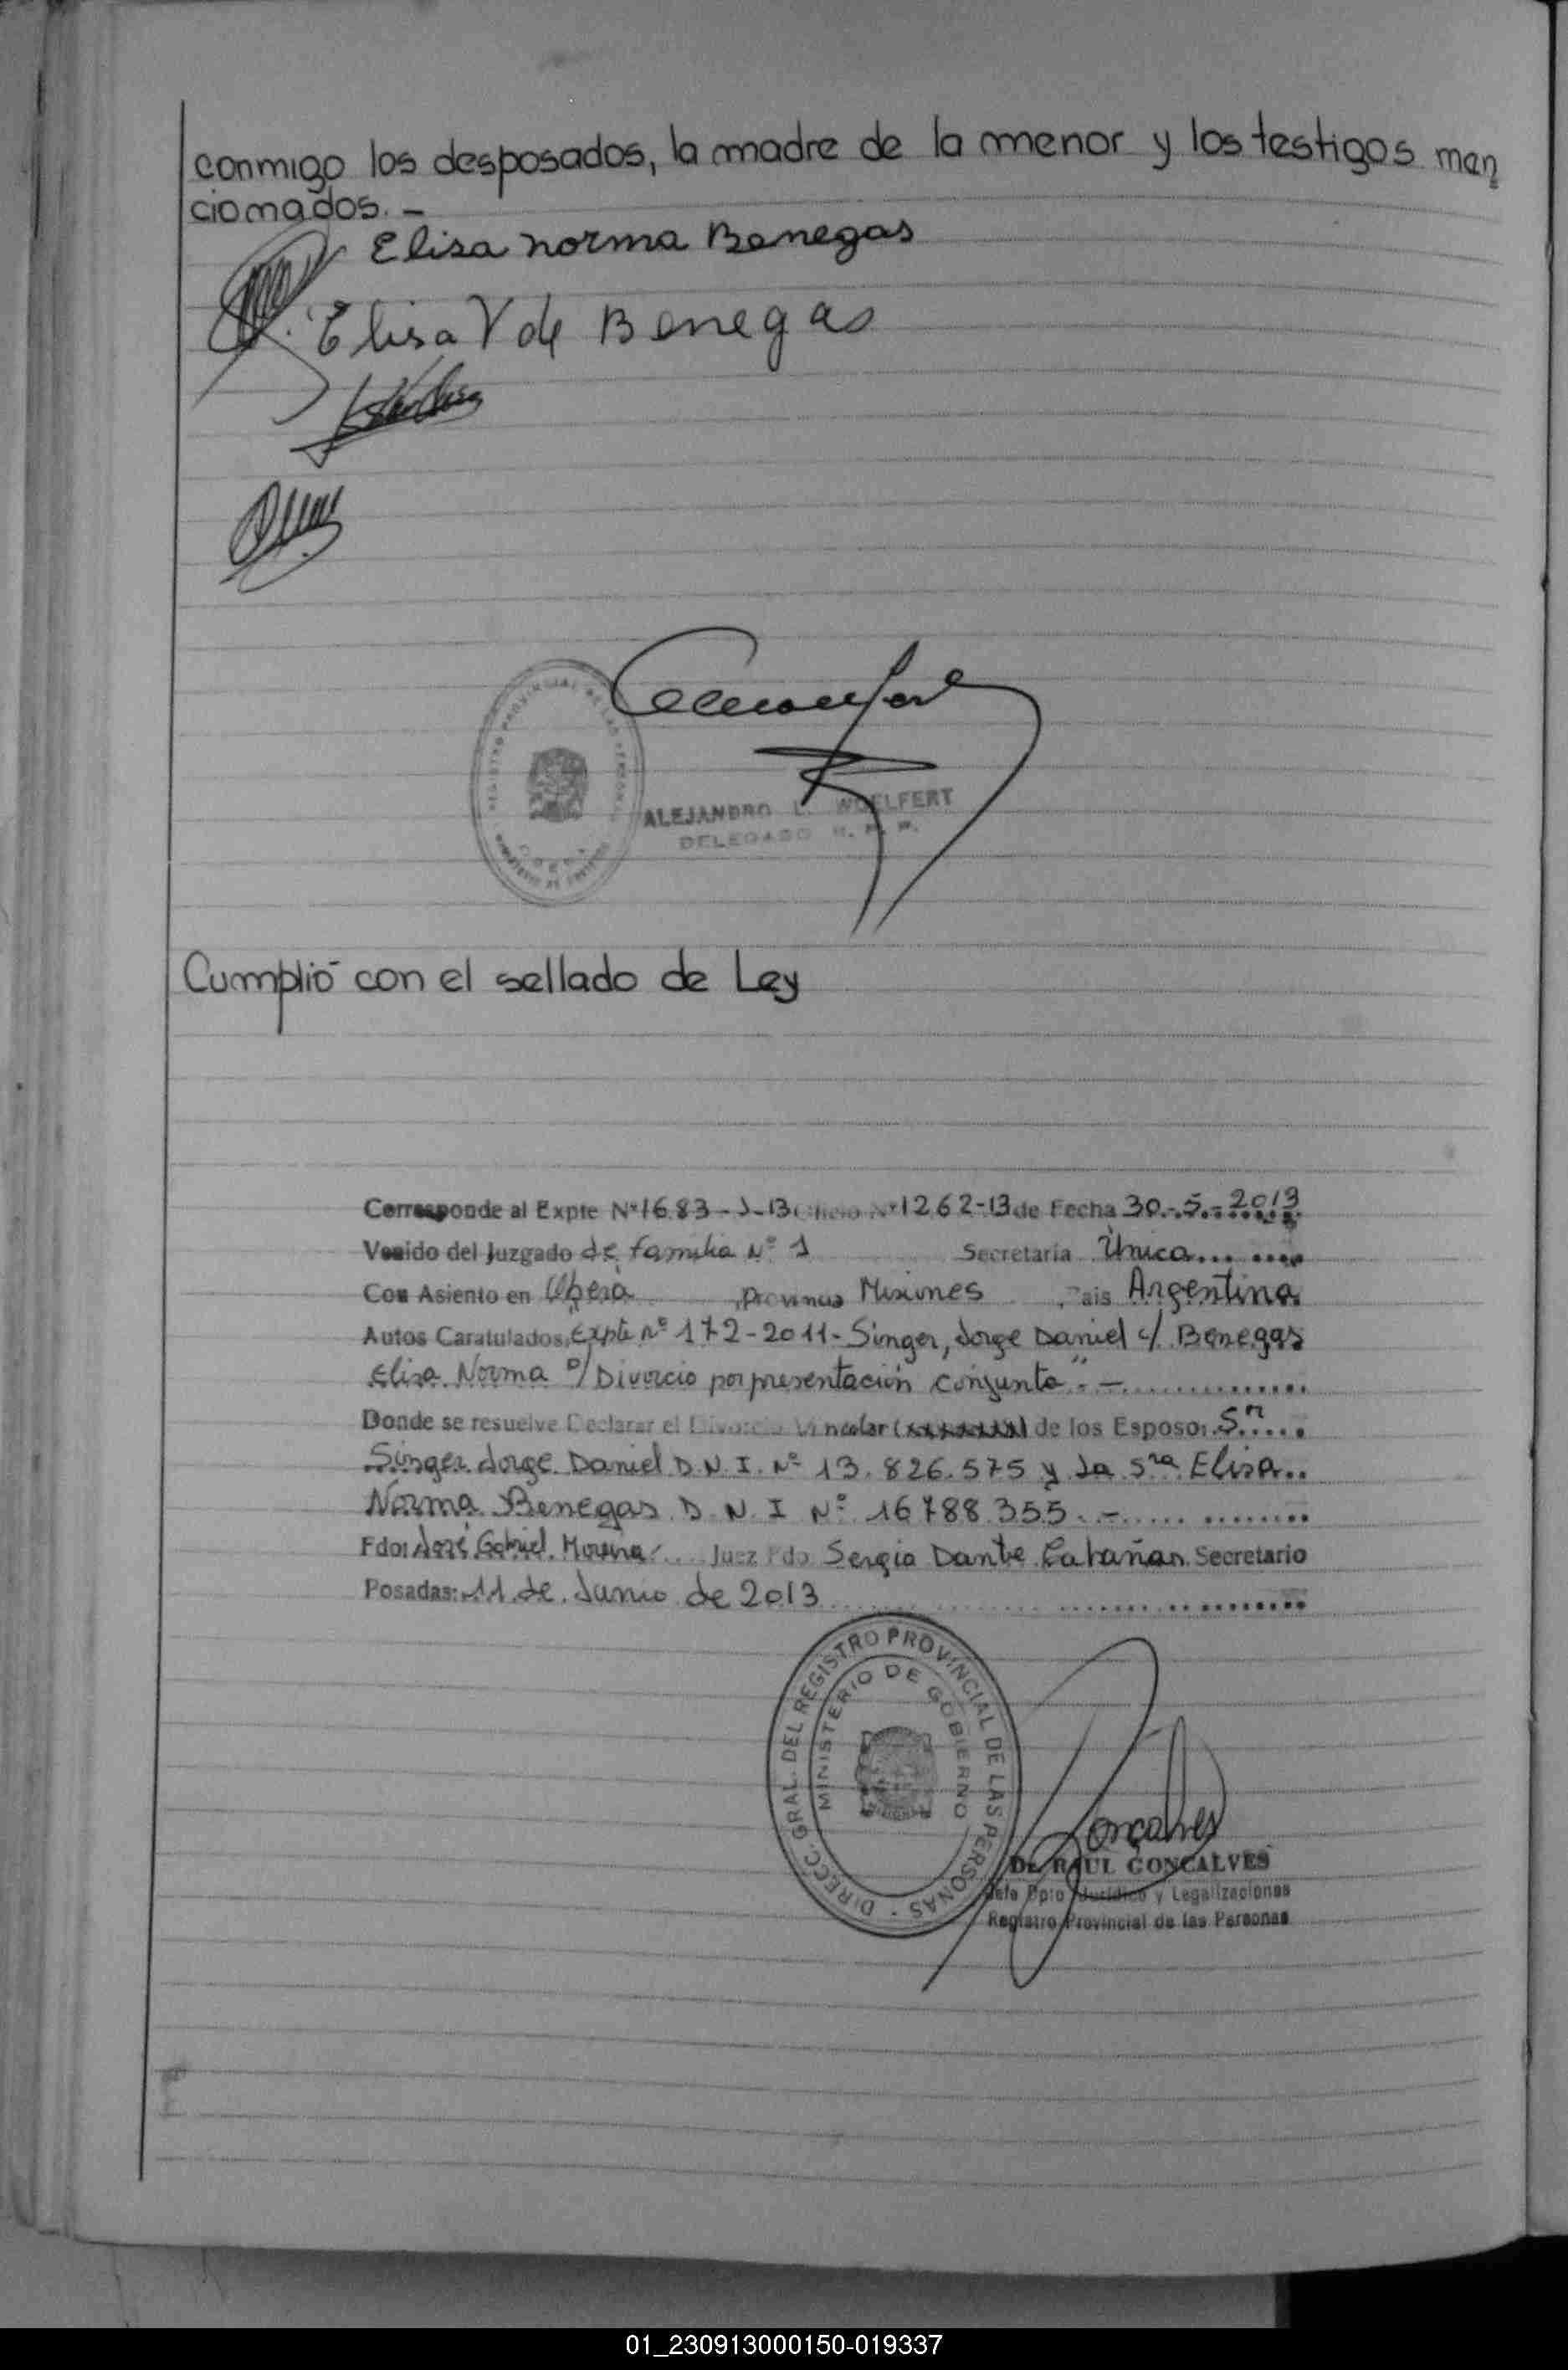 conmigo los desposados, la madre de la menor y los testigos men
cionados. -
Elisa norma Benegas
Elisa V de Benegas
REGISTRO PROVINCIAL DE LAS PERSONAS
ALEJANDRO L. WOELFERT
DELEGADO
Cumplió con el sellado de Ley
Corresponde al Expte Nº 1683-J-13 Oficio Nº 1262-13 de Fecha 30-5-2013
Venido del Juzgado de familia Nº 1 Secretaría Única
Con Asiento en Oberá Provincia Misiones Pais Argentina
Autos Caratulados, Expte Nº 172-2011- Singer, Jorge Daniel c/ Benegas
Elisa Norma s/ Divorcio por presentación conjunta". -
Donde se resuelve Declarar el Divorcio Vincular (xxxxxxxx) de los Esposos Sr
Singer Jorge Daniel D.N.I. Nº 13.826.575 y la Sra Elisa
Norma Benegas D.N.I Nº 16788.355. -
Fdo: José Gabriel Moreira Juez Fdo Sergio Dante Secretario
Posadas: 11 de Junio de 2013
DIRECC. GRAL. DEL REGISTRO PROVINCIAL DE LAS PERSONAS -
MINISTERIO DE GOBIERNO
Dr. RAUL GONCALVES
Jefe Dpto Jurídico y Legalizaciones
Registro Provincial de las Personas
01_230913000150-019337